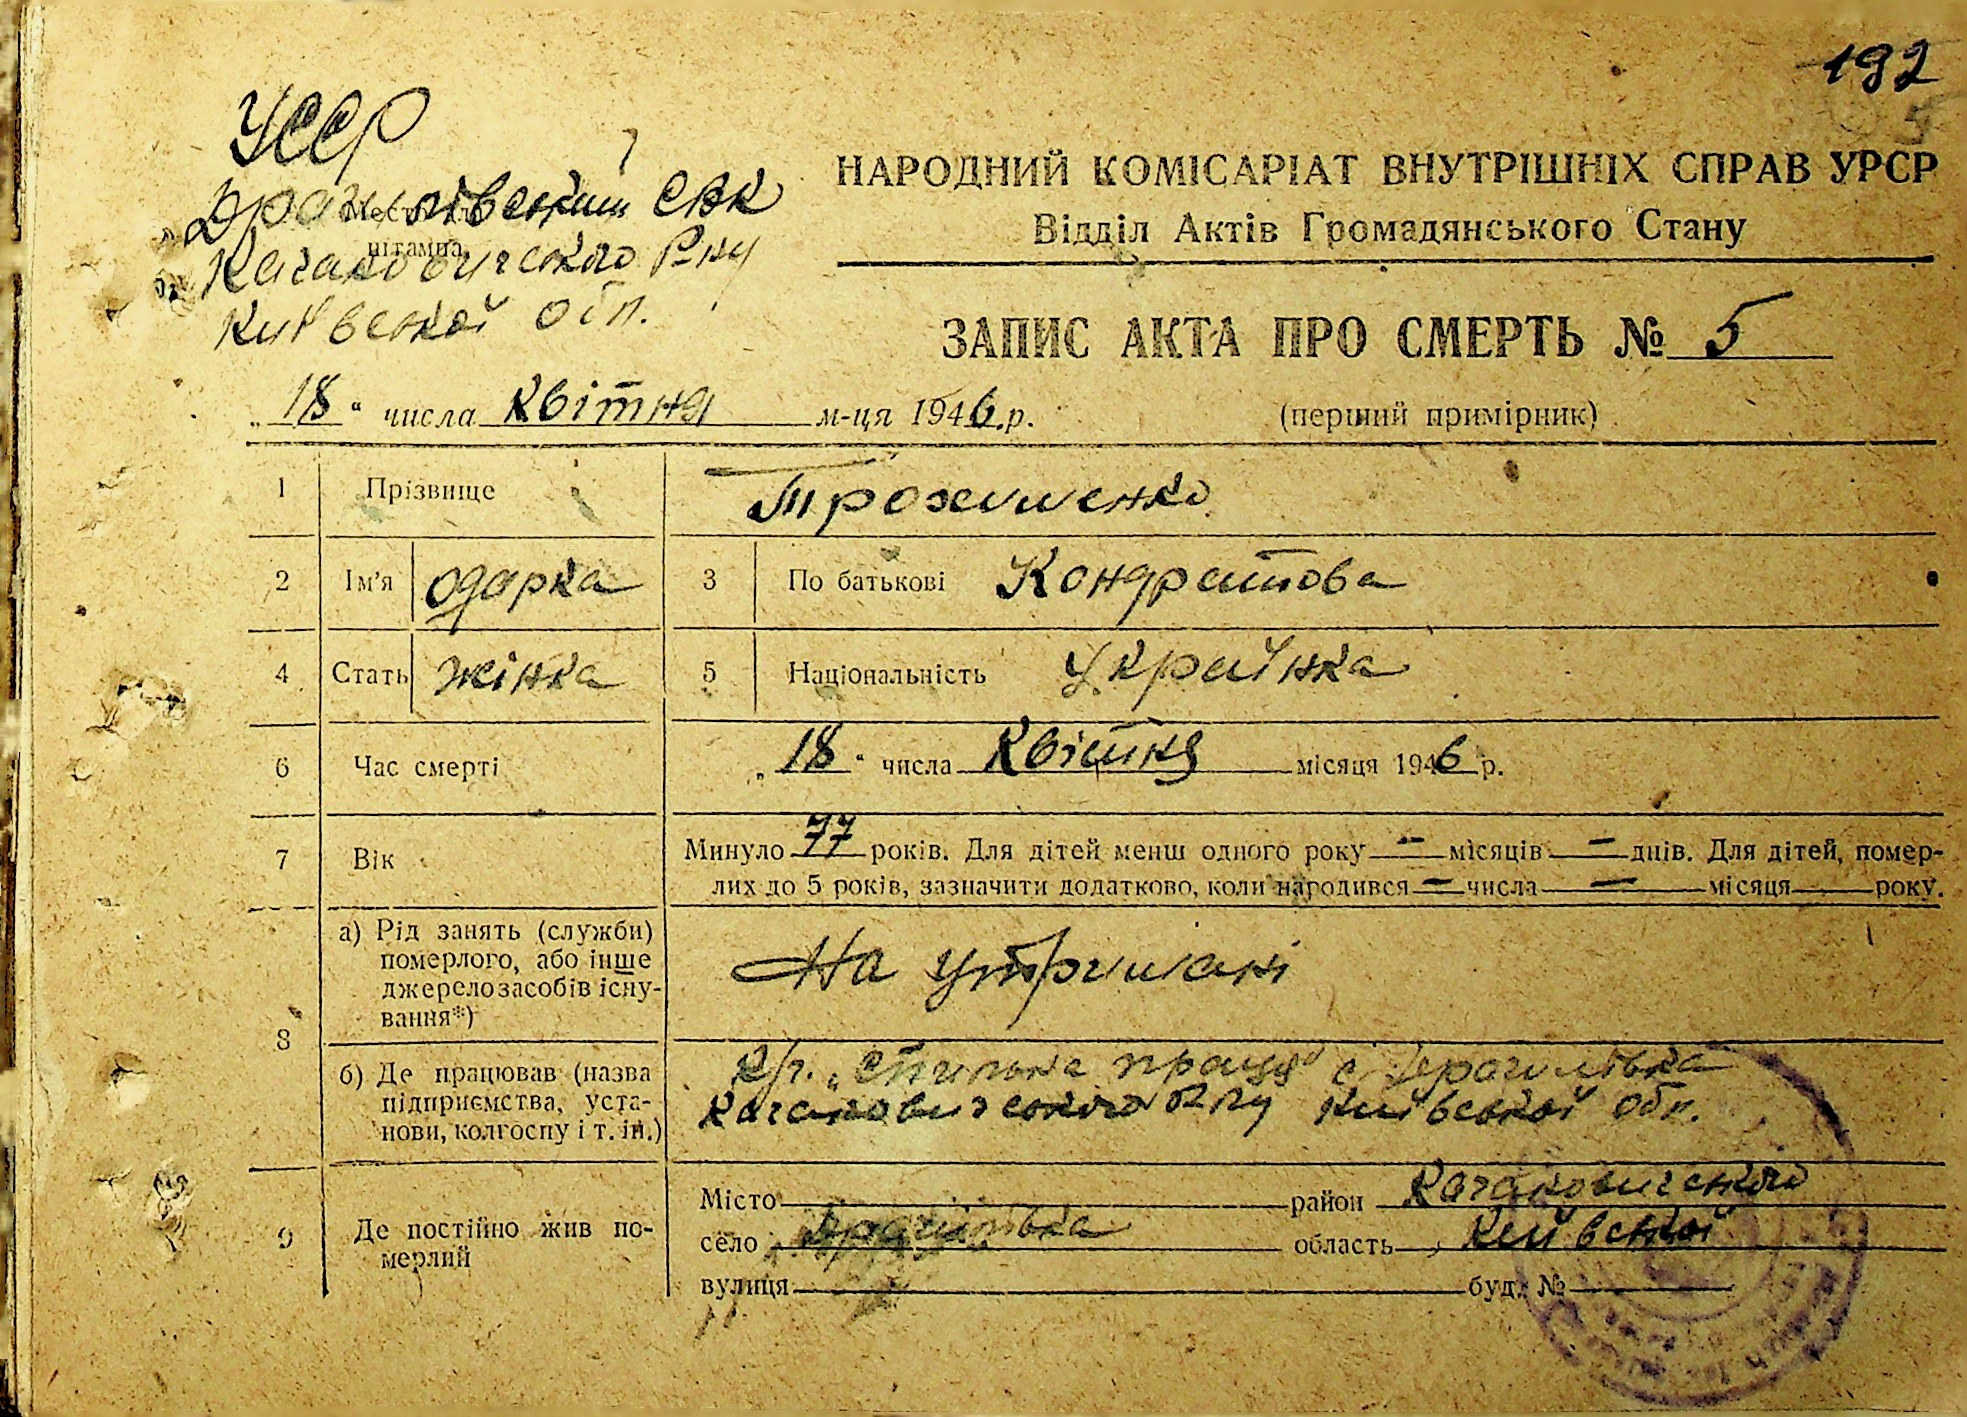 192
УССР
Драчилівський СВК
Кагановичського Р-ну
Київської обл.
Місце для
штампа
НАРОДНИЙ КОМІСАРІАТ ВНУТРІШНІХ СПРАВ УРСР
Відділ Актів Громадянського Стану
ЗАПИС АКТА ПРО СМЕРТЬ № 5
„18“ числа квітня м-ця 1946.р.
(перший примірник)
1 Прізвище Трохименко
2 Ім'я Одарка 3 По батькові Кондратова
4 Стать жінка 5 Національність Українка
6 Час смерті „18“ числа квітня місяця 1946 р.
7 Вік Минуло 77 років. Для дітей менш одного року — місяців — днів. Для дітей, помер-
лих до 5 років, зазначити додатково, коли народився — числа — місяця року.
8
а) Рід занять (служби)
померлого, або інше
джерело засобів існу-
вання*)
На утримані
б) Де працював (назва
підприємства, уста-
нови, колгоспу і т. ін.)
К/г. „Спільна праця" с Драчилівка
Кагановичського Р-ну Київської обл.
9 Де постійно жив по-
мерлий
Місто район Кагановичського
село Драчилівка область Київської
вулиця буд. №